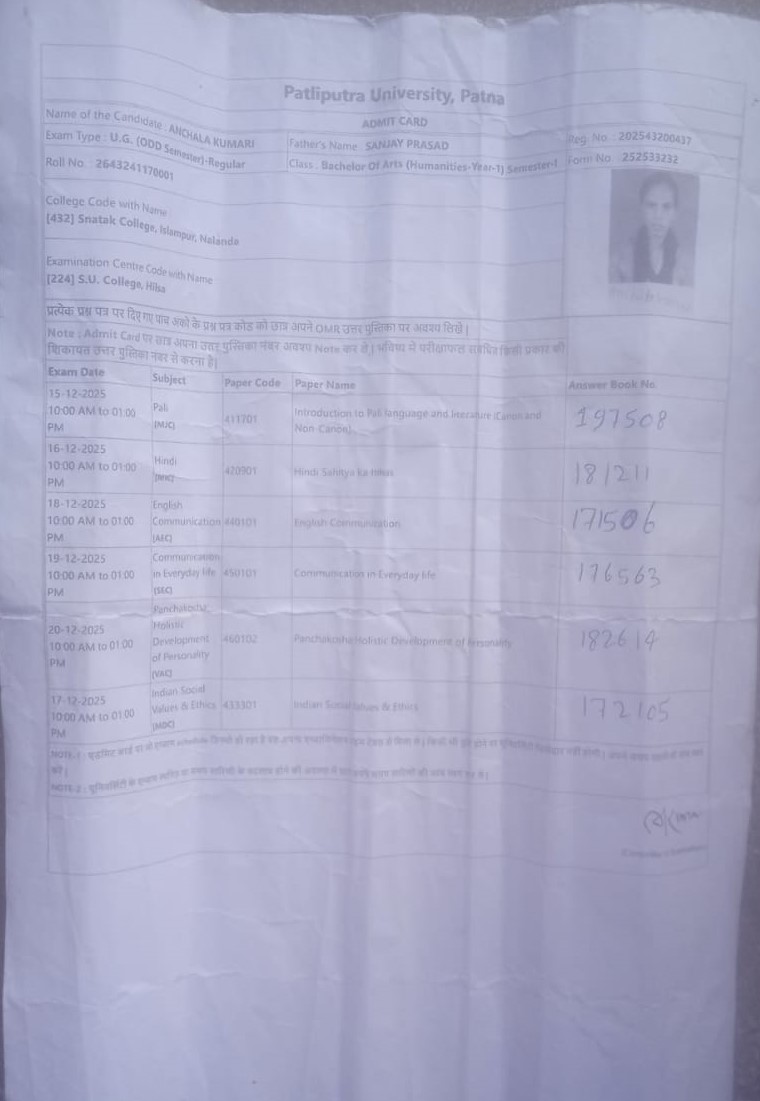 Patliputra University, Patna
ADMIT CARD
Name of the Candidate : ANCHALA KUMARI
Father's Name : SANJAY PRASAD
Reg. No. : 202543200437
Exam Type : U.G. (ODD Semester)-Regular
Class : Bachelor Of Arts (Humanities-Year-1) Semester-I
Form No. : 252533232
Roll No. : 2643241170001
College Code with Name
[432] Snatak College, Islampur, Nalanda
Examination Centre Code with Name
[224] S.U. College, Hilsa
प्रत्येक प्रश्न पत्र पर दिए गए पांच अंको के प्रश्न पत्र कोड को छात्र अपने OMR उत्तर पुस्तिका पर अवश्य लिखें |
Note : Admit Card पर छात्र अपना उत्तर पुस्तिका नंबर अवश्य Note कर ले | भविष्य में परीक्षाफल संबंधित किसी प्रकार की
शिकायत उत्तर पुस्तिका नंबर से करना है|
Exam Date Subject Paper Code Paper Name Answer Book No.
15-12-2025
10:00 AM to 01:00
PM
Pali
(MJC)
411701
Introduction to Pali language and literature (Canon and
Non-Canon)
197508
16-12-2025
10:00 AM to 01:00
PM
Hindi
420901
Hindi Sahitya ka
181211
18-12-2025
10:00 AM to 01:00
PM
English
Communication
(AEC)
440101
English Communication
171506
19-12-2025
10:00 AM to 01:00
PM
Communication
in Everyday life
(SEC)
450101
Communication in Everyday life
176563
20-12-2025
10:00 AM to 01:00
PM
Panchakosha:
Holistic
Development
of Personality
(VAC)
460102
Panchakosha:Holistic Development of Personality
182614
17-12-2025
10:00 AM to 01:00
PM
Indian Social
Values & Ethics
(MDC)
433301
Indian Social Values & Ethics
172105